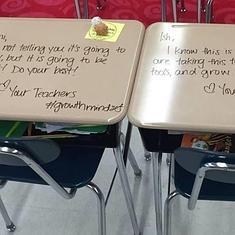 not telling you it's going to
, but it is going to be
! Do your best!
♡ Your Teachers
#growthmindset
Ish,
I know this is
are taking this t
tools, and grow
♡ You